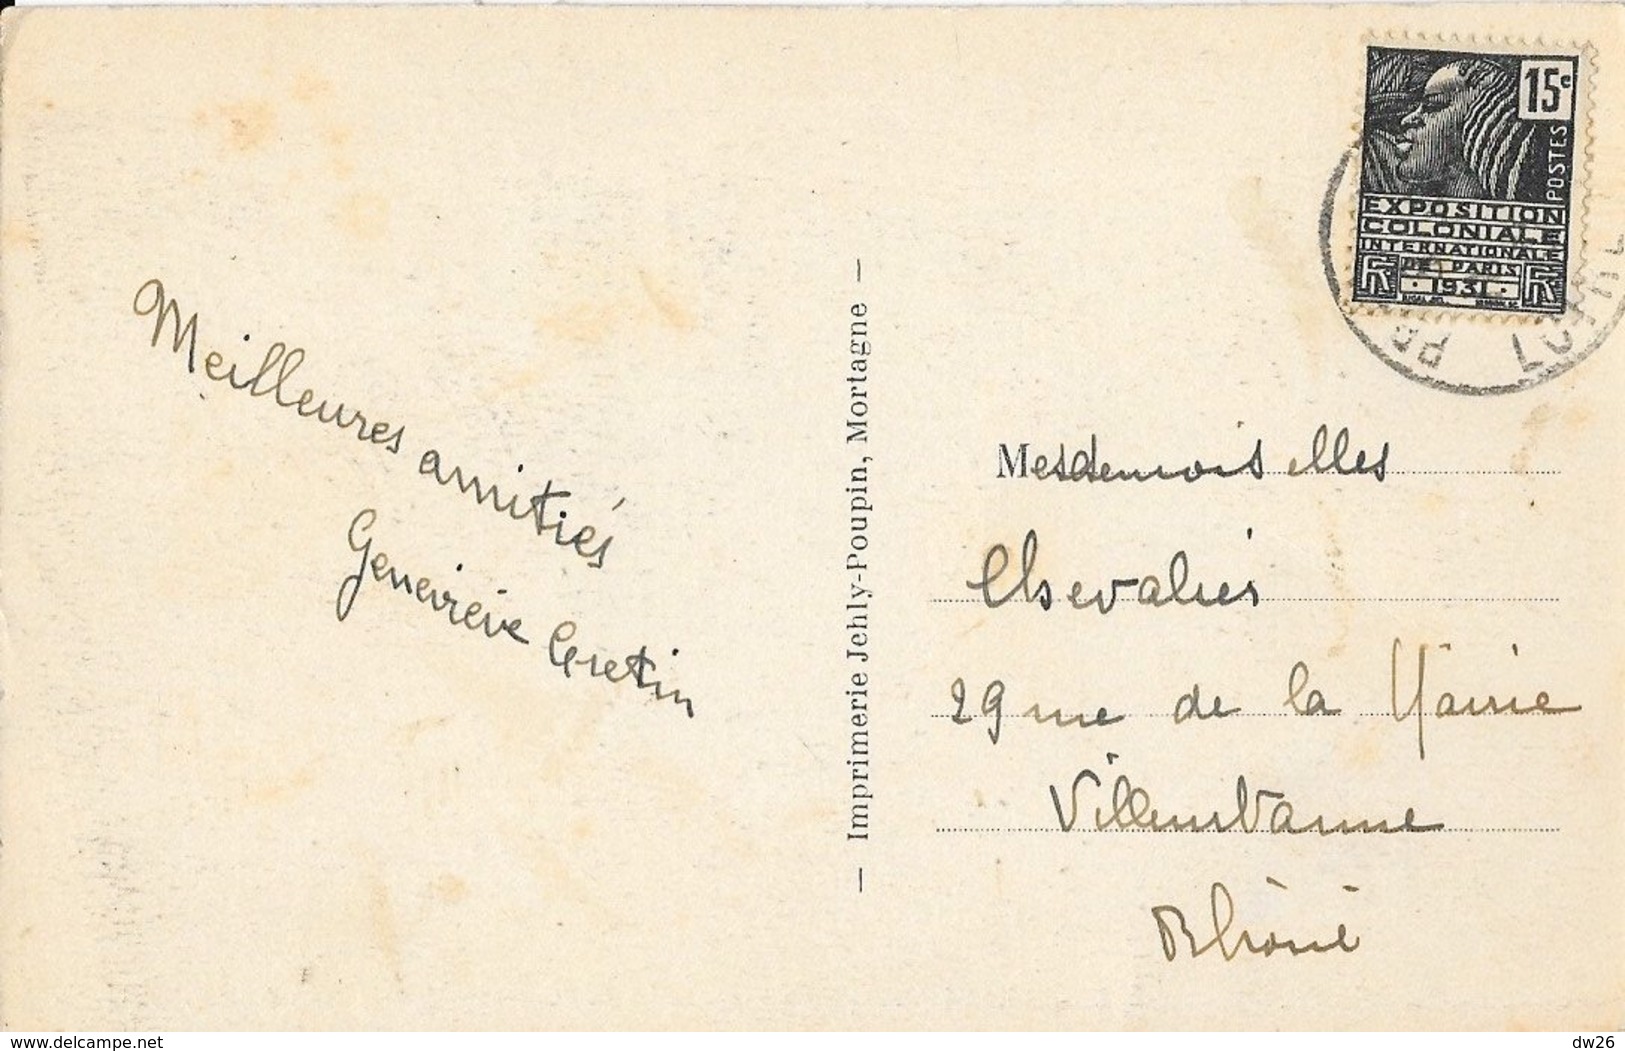 Meilleures amitiés
Geneviève Cretin
— Imprimerie Jehly-Poupin, Mortagne —
15c
POSTES
EXPOSITION
COLONIALE
INTERNATIONALE
DE PARIS
1931
RF RF
Mesdemoiselles
Chevalier
29 rue de la Mairie
Villeurbanne
Rhône
www.delcampe.net
dw26